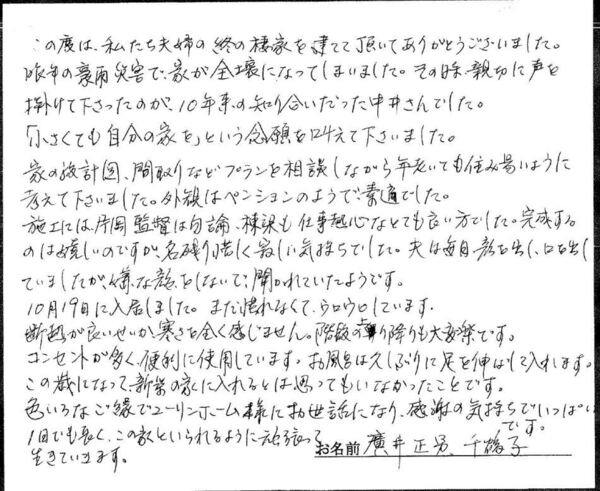 この度は、私たち夫婦の終の棲家を建てて頂いてありがとうございました。
昨年の豪雨災害で、家が全壊になってしまいました。その時、親切に声を
掛けて下さったのが、10年来の知り合いだった中井さんでした。
「小さくても自分の家を」という念願を叶えて下さいました。
家の設計図、間取りなどプランを相談しながら年老いても住み易いように
考えて下さいました。外観はペンションのようで、素適でした。
施工には片岡監督は勿論、棟梁も仕事熱心なとても良い方でした。完成する
のは嬉しいのですが、名残り惜しく寂しい気持ちでした。夫は毎日顔を出し、口を出し
ていましたが、嫌な顔をしないで、聞かれていたようです。
10月19日に入居しました。まだ慣れなくて、ウロウロしています。
断熱が良いせいか、寒さを全く感じません。階段の上り降りも大変楽です。
コンセントが多く、便利に使用しています。お風呂は久しぶりに足を伸ばして入れます。
この歳になって、新築の家に入れるとは思ってもいなかったことです。
色いろなご縁でユーリンホーム様にお世話になり、感謝の気持ちでいっぱい
です。
1日でも長く、この家といられるように頑張って
生きていきます。
お名前 廣井正男、千鶴子